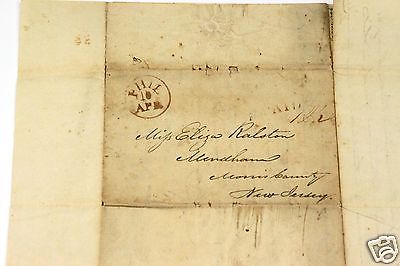 PHIL
10
APR
Miss Eliza Ralston
Mendham
Morris County
New Jersey.